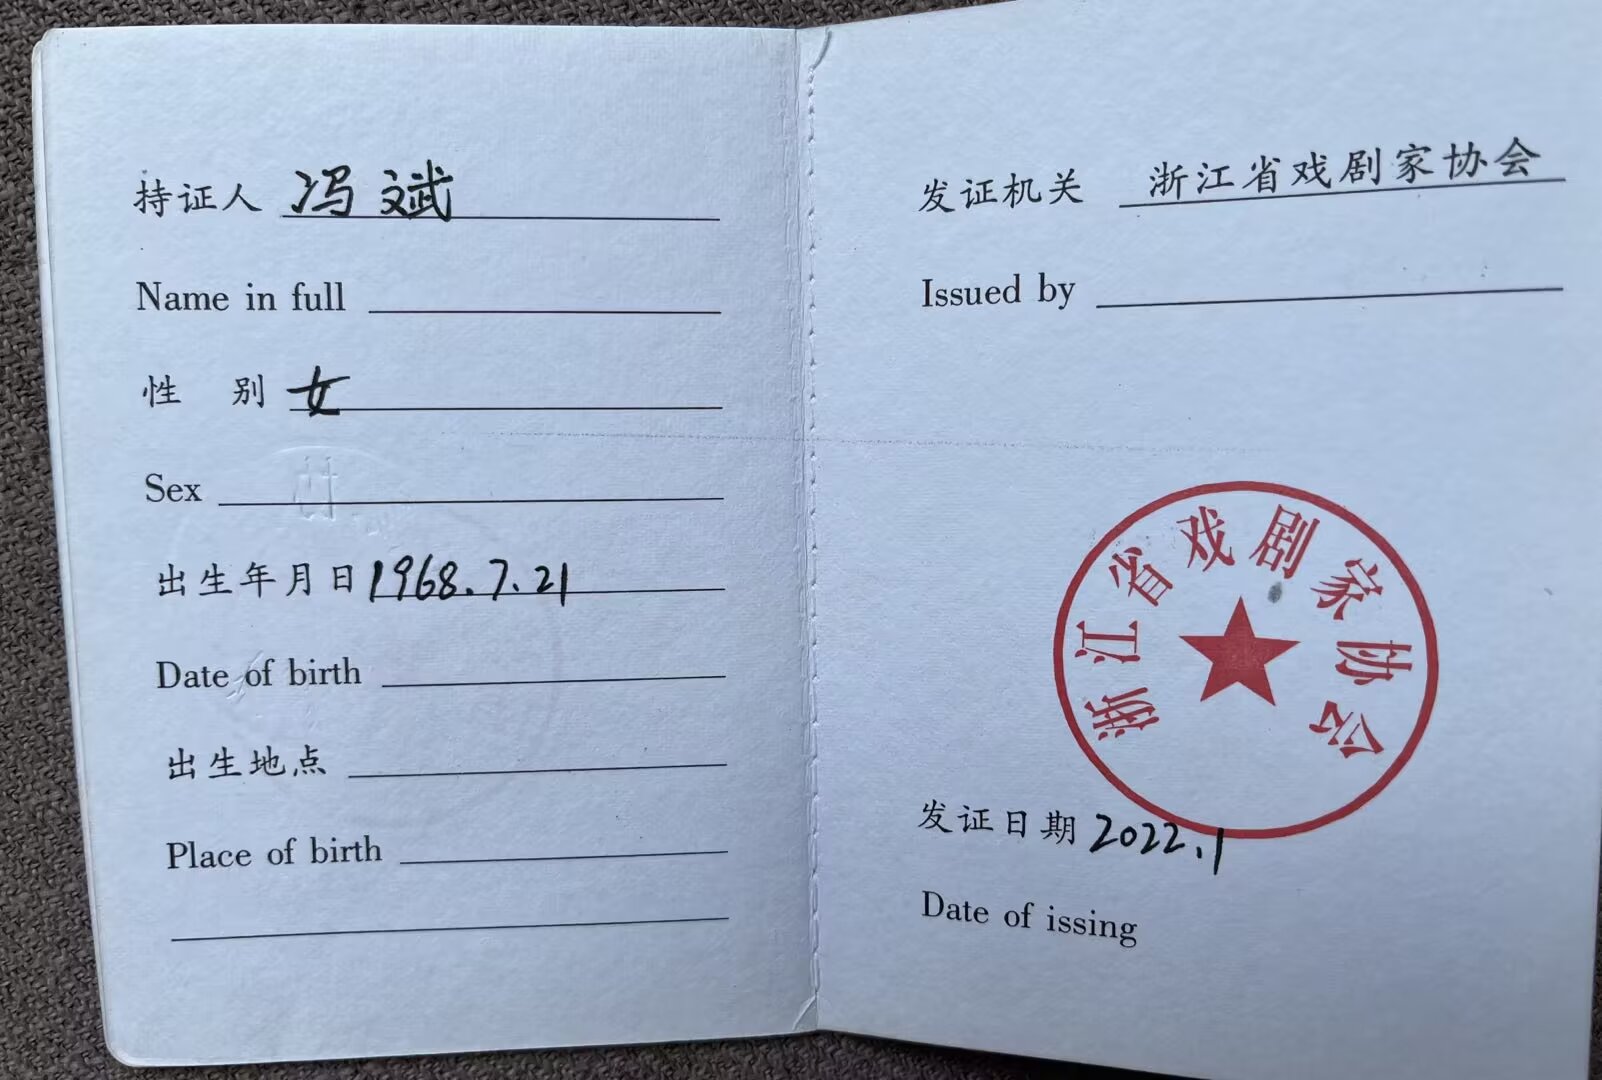 持证人 冯斌
Name in full
性 别 女
Sex
出生年月日 1968.7.21
Date of birth
出生地点
Place of birth
发证机关 浙江省戏剧家协会
Issued by
浙江省戏剧家协会
发证日期 2022.1
Date of issing